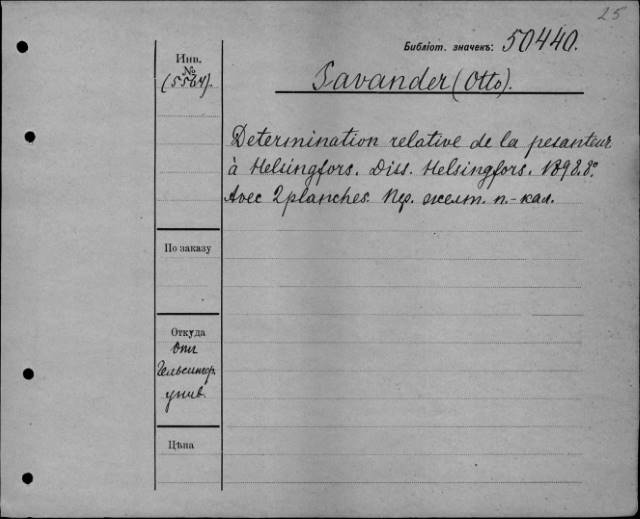 25
Библіот. значекъ: 50440.
Инв.
№
(5564).
Savander (Otto).
Determination relative de la pesanteur
à Helsingfors. Diss. Helsingfors. 1898. 8º
Avec 2 planches. Пер. желт. п.-кал.
По заказу
Откуда
Отъ
Гельсингф.
унив.
Цѣна